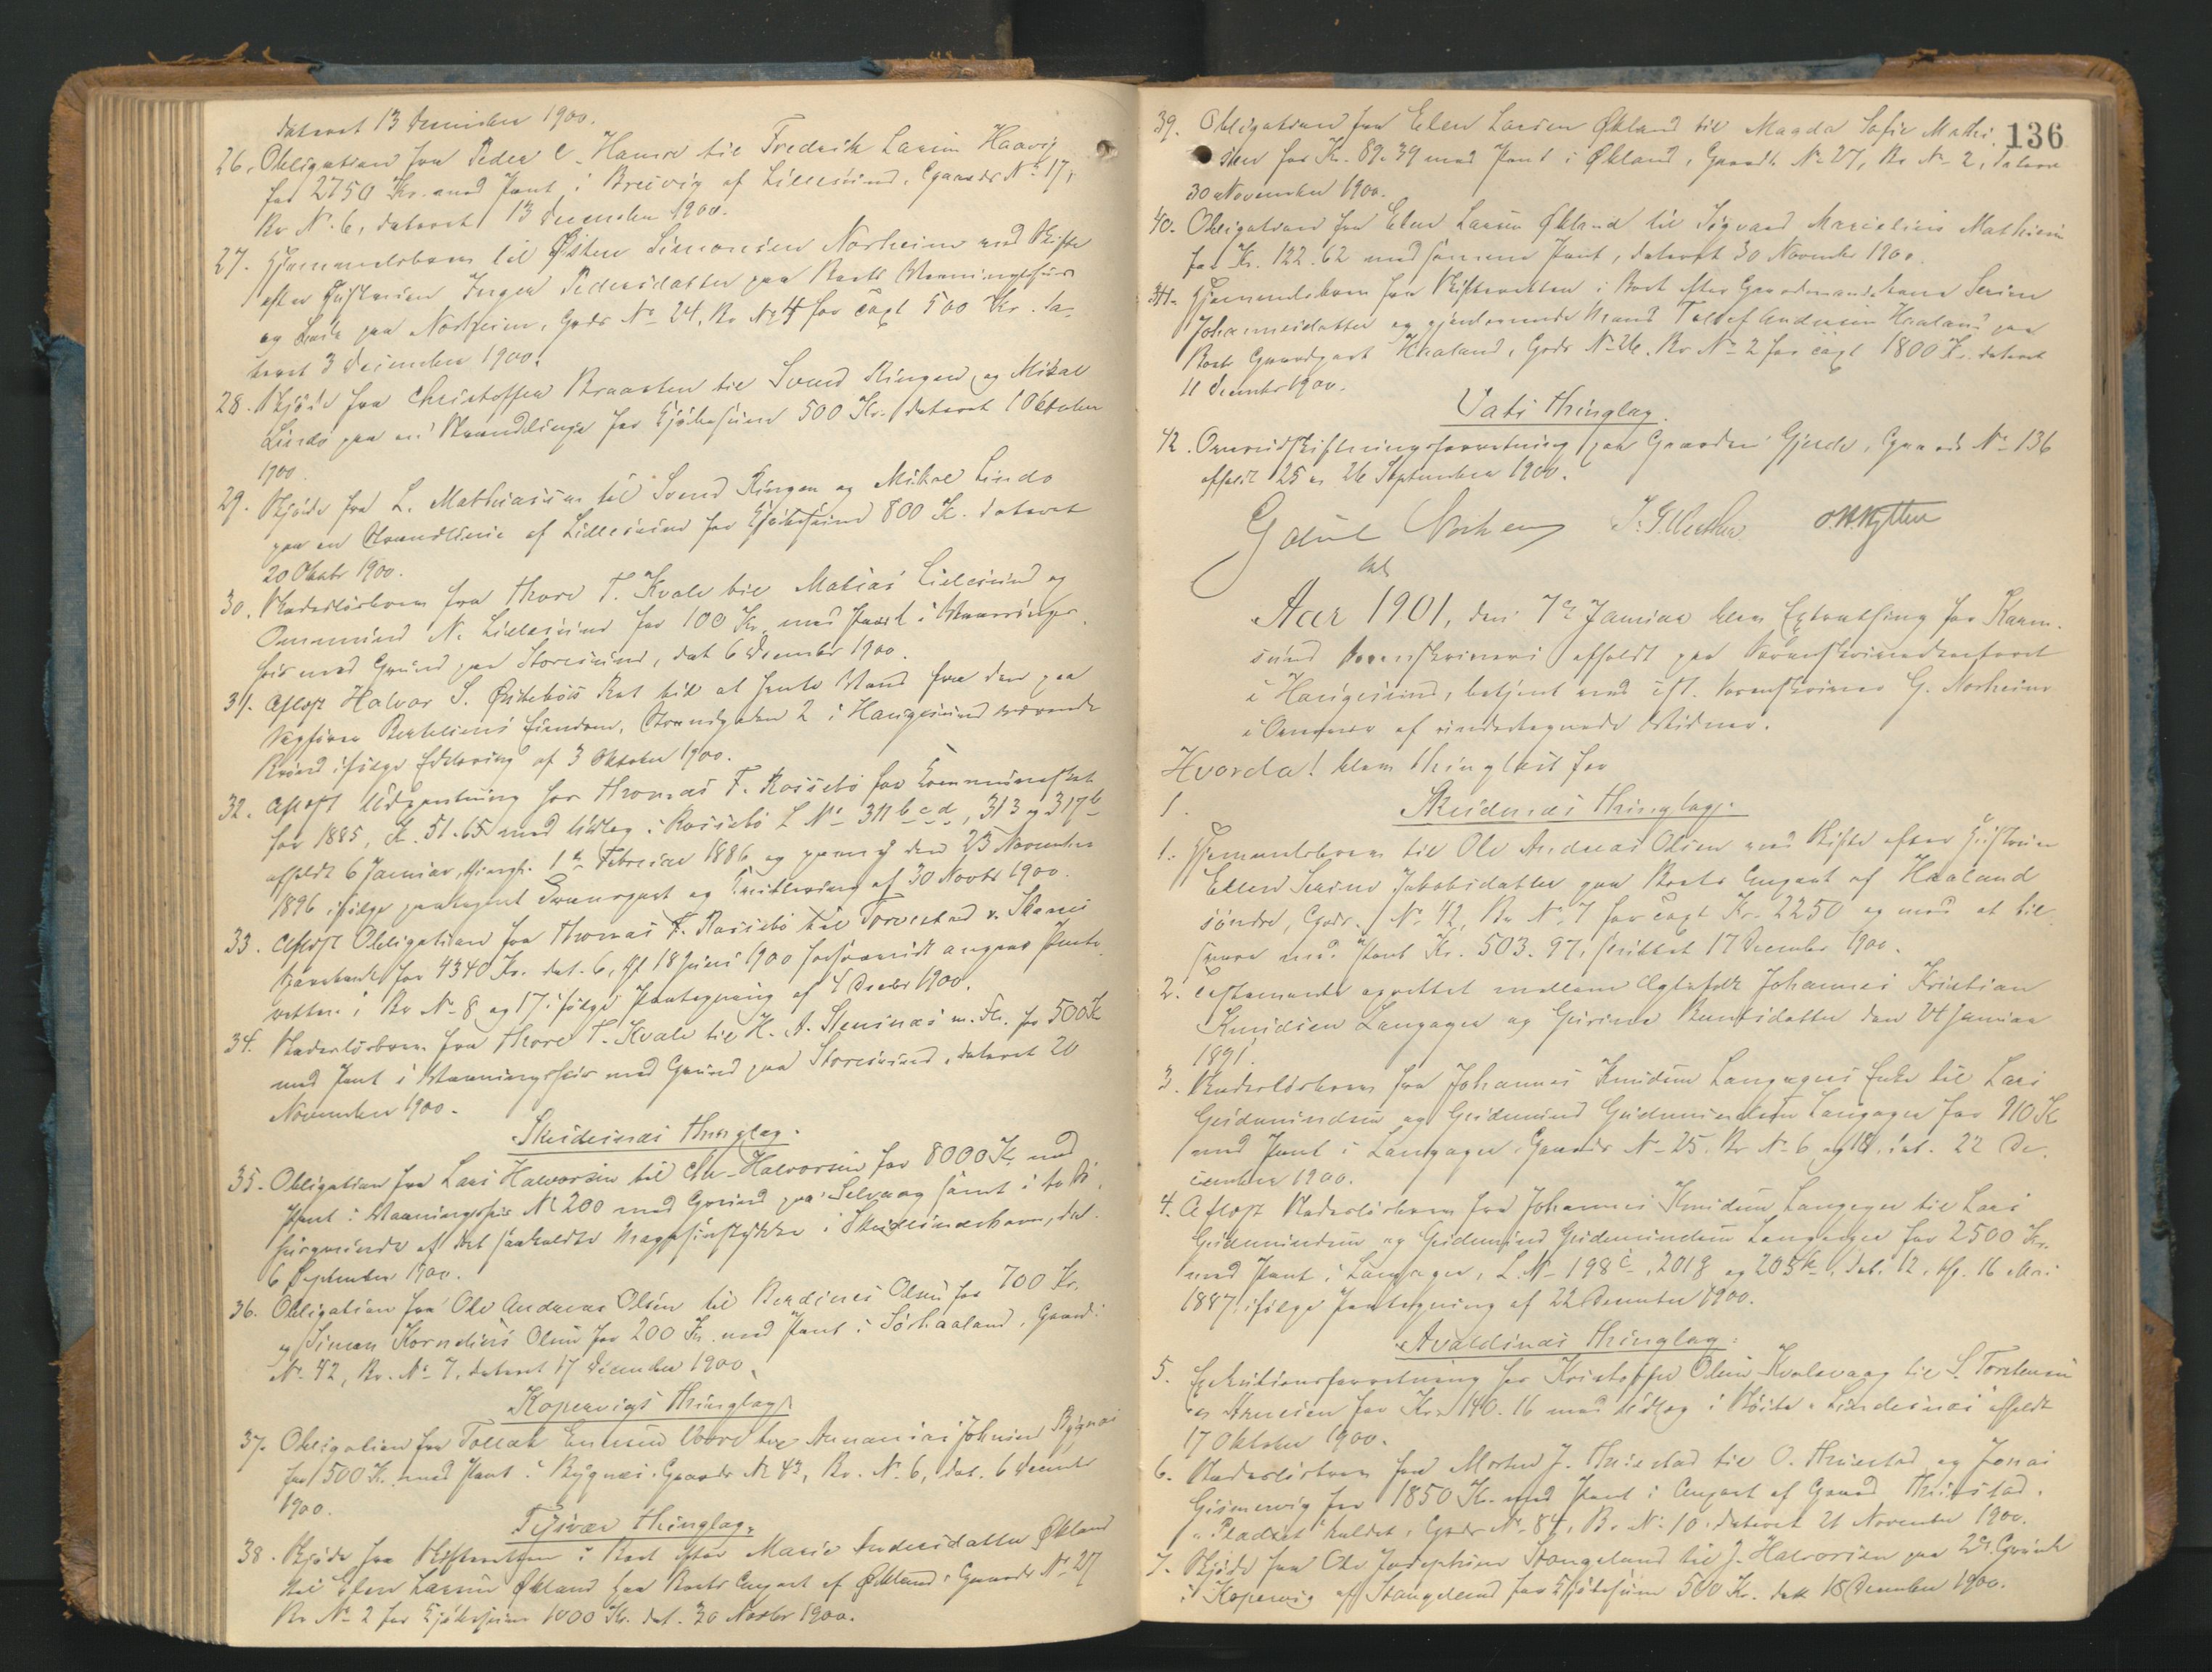 dateret 13 December 1900.
26. Obligation fra Peder C. Hamre til Fredrik Larsen Haavig
for 2750 Kr. med Pant i Breivig af Lillesund, Gaards No 17,
Br No 6, dateret 13 December 1900.
27. Hjemmelsbrev til Østen Simonsen Norheim med Skifte
efter Hustruen Inger Pedersdatter paa Boets Vaaningshus
og Løde paa Norheim, Gards No 24, Br No 4 for taxt 500 Kr. da-
teret 3 December 1900.
28. Skjøde fra Christoffer Braasten til Svend Ringen og Mikal
Lindø paa en Strandlinje for Kjøbesum 500 Kr. dateret 1 Oktober
1900.
29. Skjøde fra L. Mathiassen til Svend Ringen og Mikal Lindø
paa en Strandlinie af Lillesund for Kjøbesum 800 K. dateret
20 Oktobr 1900.
30. Skadesløsbrev fra Thore T. Kvale til Matias Lillesund og
Ommund N. Lillesund for 100 Kr. med Pant i Vaanings-
hus med Grund paa Storesund, dat 6 December 1900.
31. Aflyst Halvor S. Østebøs Ret til at hente Vand fra den paa
Bertelsens Eiendom, Strandgaden 2 i Haugesund værende
Brønd ifølge Erklæring af 3 Oktober 1900.
32. Aflyst Udpantning hos Thomas T. Rossebø for Kommuneskat
for 1885, K. 51.65 med Udlæg i Rossebø L No 311 b c d, 313 og 317 b
afholdt 6 Januar, thingl. 1ste Februar 1886 og den 23 November
1896 ifølge Transport og Kvittering af 30 Novbr 1900.
33. Aflyst Obligation fra Thomas T. Rossebø til Torvestad & Skaare
Sparebank for 4340 Kr. dat. 6, thgl 18 Juni 1900 forsaavidt angaar Pante-
retten i Br No 8 og 17 ifølge Paategning af 4 Decbr 1900.
34. Skadesløsbrev fra Thore T. Kvale til H. A. Stensnæs m. Fl. for 500 K
med Pant i Vaaningshus med Grund paa Storesund, dateret 20
November 1900.
Skudesnæs Thinglag.
35. Obligation fra Lars Halvorsen til Halvorsen for 8000 K. med
Pant i Vaaningshus No 200 med Grund paa Selvaag samt i
af det saakaldte i Skudesneshavn, dat.
6 September 1900.
36. Obligation fra Ole Andreas Olsen til Berdines Olsen for 700 Kr.
og Simon Kornelius Olsen for 200 Kr. med Pant i Sørhaaland, Gaards
No 42, Br. No 7, dateret 17 December 1900.
Kopervigs Thinglag.
37. Obligation fra Tollak Vorre til Ananias Johnsen Bygnæs
for 1500 K. med Pant i Bygnes, Gaards No 43, Br. No 6, dat. 6 Decembr
1900.
Tysvær Thinglag.
38. Skjøde fra Skifteretten i Boet efter Marie Andersdatter Økland
til Elen Larsen Økland paa Boets Enpart af Økland, Gaards No 27
Br No 2 for Kjøbesum 1000 Kr. dat. 30 Novbr 1900.
136
39. Obligation fra Elen Larsen Økland til Magda Sofie Mathi-
sen for Kr. 89.39 med Pant i Økland, Gaards No 27, Br No 2, dateret
30 November 1900.
40. Obligation fra Elen Larsen Økland til Sigvard Marselius Mathisen
for Kr. 122.62 med samme Pant, dateret 30 November 1900.
41. Hjemmelsbrev fra Skifteretten i Boet efter Gaardmandskone Serine
Johannesdatter og gjenlevende Mand Tollef Andersen Haaland paa
Boets Gaardpart Haaland, Gards No 26, Br No 2 for taxt 1800 K. dateret
11 Decembr 1900.
Vats Thinglag.
42. Omudskiftningsforretning paa Gaarden Gjerde, Gaards No 136
afholdt 25 og 26 September 1900.
Aar 1901, den 7de Januar blev Extrathing for Karm-
sund Sorenskriveri afholdt paa Sorenskriverkontoret
i Haugesund, betjent ved cst. Sorenskriver G. Norheim
i Overvær af undertegnede Vidner.
Hvorda! blev thinglæst for
1. Skudenæs Thinglag.
1. Hjemmelsbrev til Ole Andreas Olsen med Skifte efter Hustruen
Ellen Serine Jakobsdatter paa Boets Enpart af Haaland
søndre, Gards. No 42, Br No 7 for taxt Kr. 2250 og med at til-
svare med Pant Kr. 503.97, sluttet 17 December 1900.
2. Testamente oprettet mellem Ægtefolk Johannes Kristian
Knudsen Langager og Gurine Bentsdatter den 24 Januar
1891.
3. Skadesløsbrev fra Johannes Knudsen Langagers Enke til Lars
Gudmundsen og Gudmund Gudmundsen Langager for 910 K
med Pant i Langager, Gaards No 25, Br No 6 og 18, dat. 22 De-
cember 1900.
4. Aflyst Skadesløsbrev fra Johannes Knudsen Langager til Lars
Gudmundsen og Gudmund Gudmundsen Langager for 2500 Kr.
med Pant i Langager, L. No 198 c, 201 g og 205 k, dat. 12, thg. 16 Mai
1887 ifølge Paategning af 22 December 1900.
Avaldsnæs Thinglag.
5. Exekutionsforretning hos Kristoffer Olsen Kvalevaag til S. Torstensen
og Arnesen for Kr 140.16 med Udlæg i afholdt
17 Oktober 1900.
6. Skadesløsbrev fra Morten J. Thuestad til O. Thuestad og Jonas
Gismervig for 1850 Kr. med Pant i Enpart af Gaard Thuestad,
"Pladset" kaldet, Gards No 84, B. No 10. dateret 21 November 1900.
7. Skjøde fra Ole Josephsen Stangeland til J. Halvorsen paa Grund
i Kopervig af Stangeland for Kjøbesum 500 Kr. dat 18 December 1900.